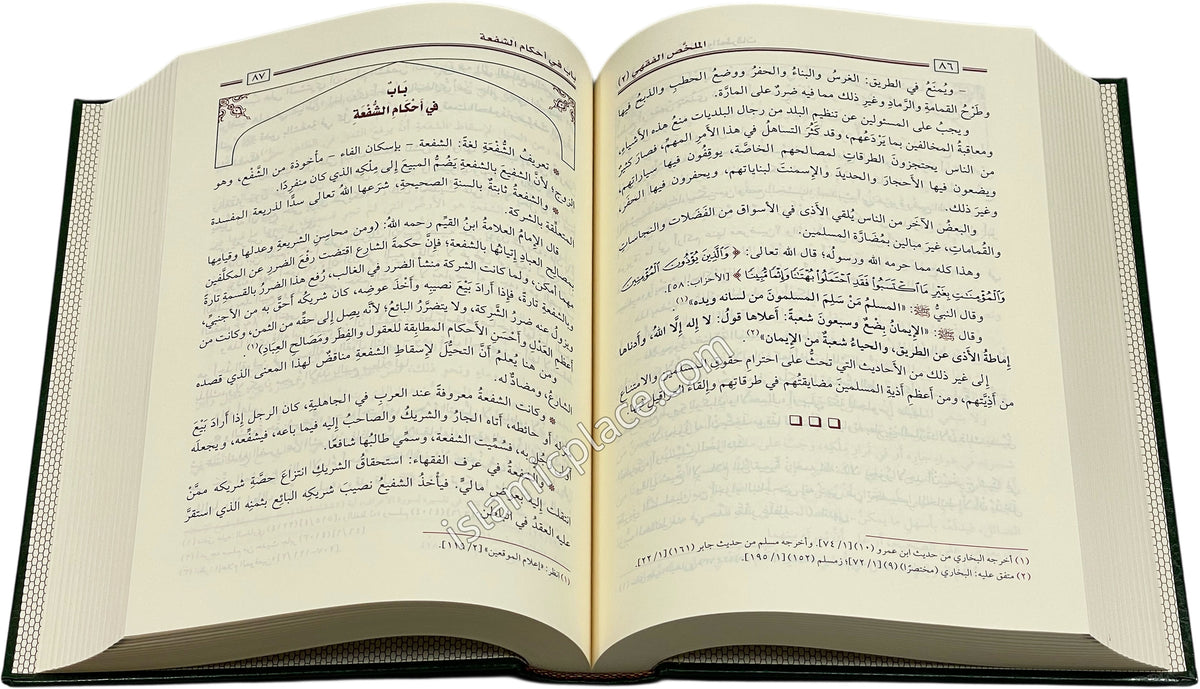 ٨٦
الملخص الفقهي (٢)
- ويُمنَعُ في الطريق: الغرسُ والبناءُ والحفرُ ووضعُ الحطبِ والذبحُ فيها
وطَرْحُ القمامةِ والرَّمادِ وغيرِ ذلك مما فيه ضررٌ على المارَّة.
ويجبُ على المسئولين عن تنظيمِ البلد من رجال البلديات منعُ هذه الأشياءِ،
ومعاقبةُ المخالفين بما يَرْدَعُهم، وقد كَثُرَ التساهلُ في هذا الأمرِ المهمِّ، فصارَ كثيرٌ
من الناسِ يحتجزونَ الطرقاتِ لمصالحهم الخاصَّة، يوقِفُون فيها سياراتِهم،
ويضعون فيها الأحجارَ والحديدَ والإسمنتَ لبناياتهم، ويحفرون فيها الحفرَ،
وغيرَ ذلك.
والبعضُ الآخر من الناس يُلقي الأذى في الأسواق من الفَضَلات والنجاساتِ
والقُماماتِ، غيرَ مبالين بمُضارَّة المسلمين.
وهذا كله مما حرمه الله ورسولُه؛ قال الله تعالى: ﴿ وَٱلَّذِينَ يُؤْذُونَ ٱلْمُؤْمِنِينَ
وَٱلْمُؤْمِنَٰتِ بِغَيْرِ مَا ٱكْتَسَبُوا۟ فَقَدِ ٱحْتَمَلُوا۟ بُهْتَٰنًا وَإِثْمًا مُّبِينًا ﴾ [الأحزاب: ٥٨].
وقال النبيُّ ﷺ: «المسلمُ مَنْ سَلِمَ المسلمونَ من لسانه ويده»(١).
وقال ﷺ: «الإيمانُ بِضْعٌ وسبعونَ شعبةً: أعلاها قولُ: لا إله إلَّا اللهُ، وأدناها
إماطةُ الأذى عن الطريق، والحياءُ شعبةٌ من الإيمان»(٢).
إلى غير ذلك من الأحاديثِ التي تحثُّ على احترامِ حقوقِ والامتناع
من أذيَّتهم، ومن أعظمِ أذيةِ المسلمينَ مضايقتُهم في طرقاتهم وإلقاءُ
(١) أخرجه البخاري من حديث ابن عمرو (١٠) [١/ ٧٤]. وأخرجه مسلم من حديث جابر (١٦١) [١/ ٢٢].
(٢) متفق عليه: البخاري (مختصرًا) (٩) [١/ ٧٢]؛ ومسلم (١٥٢) [١/ ١٩٥].
باب في أحكام الشفعة
٨٧
بابٌ
في أَحْكَامِ الشُّفْعَةِ
* تعريفُ الشُّفْعَةِ لغةً: الشفعة - بإسكان الفاء - مأخوذة من الشَّفْع، وهو
الزوج؛ لأنَّ الشفيعَ بالشفعةِ يَضُمُّ المبيعَ إلى مِلْكِه الذي كان منفردًا.
* والشفعةُ ثابتةٌ بالسنةِ الصحيحةِ، شرَعها اللهُ تعالى سدًّا لذريعة المفسدة
المتعلِّقة بالشركة.
قال الإمام العلامةُ ابنُ القيِّم رحمه اللهُ: (ومن محاسنِ الشريعةِ وعدلِها وقيامِها
بمصالحِ العبادِ إتيانُها بالشفعةِ؛ فإنَّ حكمةَ الشارعِ اقتضت رفْعَ الضررِ عن المكلَّفين
مهما أمكن، ولما كانت الشركة منشأَ الضرر في الغالب، رُفع هذا الضررُ بالقسمةِ تارةً
وبالشفعةِ تارةً، فإذا أرادَ بَيْعَ نصيبِه وأَخْذَ عوضِه، كان شريكُه أحقَّ به من الأجنبيِّ،
ويزولُ عنه ضررُ الشركة، ولا يتضرَّرُ البائعُ؛ لأنَّه يصِل إلى حقِّه من الثمن، وكانت من
أعظم العَدْلِ وأَحْسَنِ الأحكامِ المطابقة للعقول والفِطَرِ ومَصَالحِ العِبَادِ)(١).
ومن هنا يُعلمُ أنَّ التحيُّلَ لإسقاطِ الشفعةِ مناقضٌ لهذا المعنى الذي قصده
الشارعُ، ومضادٌّ له.
* وكانت الشفعةُ معروفةً عند العربِ في الجاهليةِ، كان الرجل إذا أرادَ بَيْعَ
أو حائطَه، أتاه الجارُ والشريكُ والصاحبُ إليه فيما باعه، فيشفِّعُه، ويجعلُه
أولى به، فسُمِّيت الشفعة، وسمِّي طالبُها شافعًا.
في عرف الفقهاء: استحقاقُ الشريكِ انتزاعَ حصَّةِ شريكِه ممَّنْ
انتقلت إليه بعوضٍ ماليٍّ. فيأخذُ الشفيعُ نصيبَ شريكِه البائع بثمنِه الذي استقرَّ
عليه العقدُ في
(١) انظر: «إعلام الموقعين» [٢/
islamicplace.com